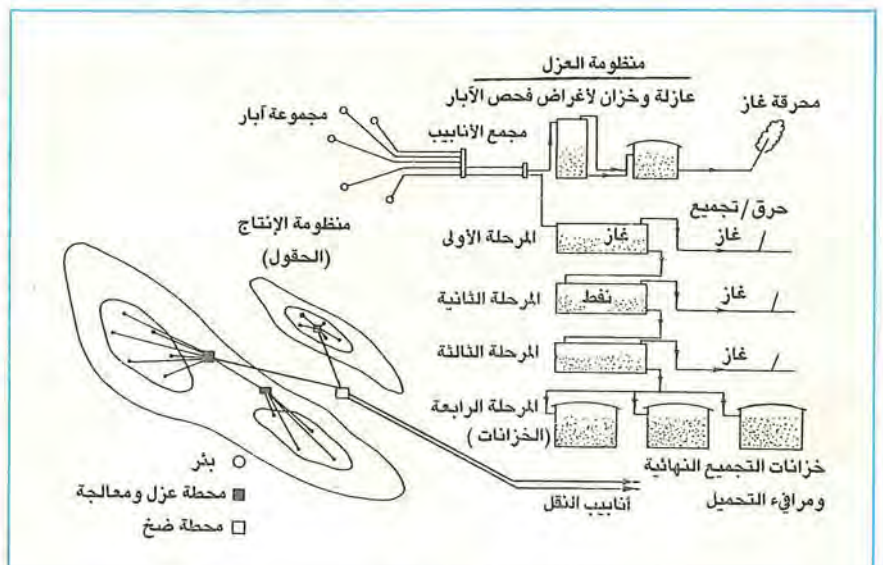 منظومة العزل
عازلة وخزان لأغراض فحص الآبار
محرقة غاز
مجموعة آبار
مجمع الأنابيب
حرق/تجميع
منظومة الإنتاج
(الحقول)
المرحلة الأولى
غاز
غاز
المرحلة الثانية
نفط
غاز
المرحلة الثالثة
غاز
المرحلة الرابعة
(الخزانات)
خزانات التجميع النهائية
ومرافيء التحميل
أنابيب النقل
بئر
محطة عزل ومعالجة
محطة ضخ